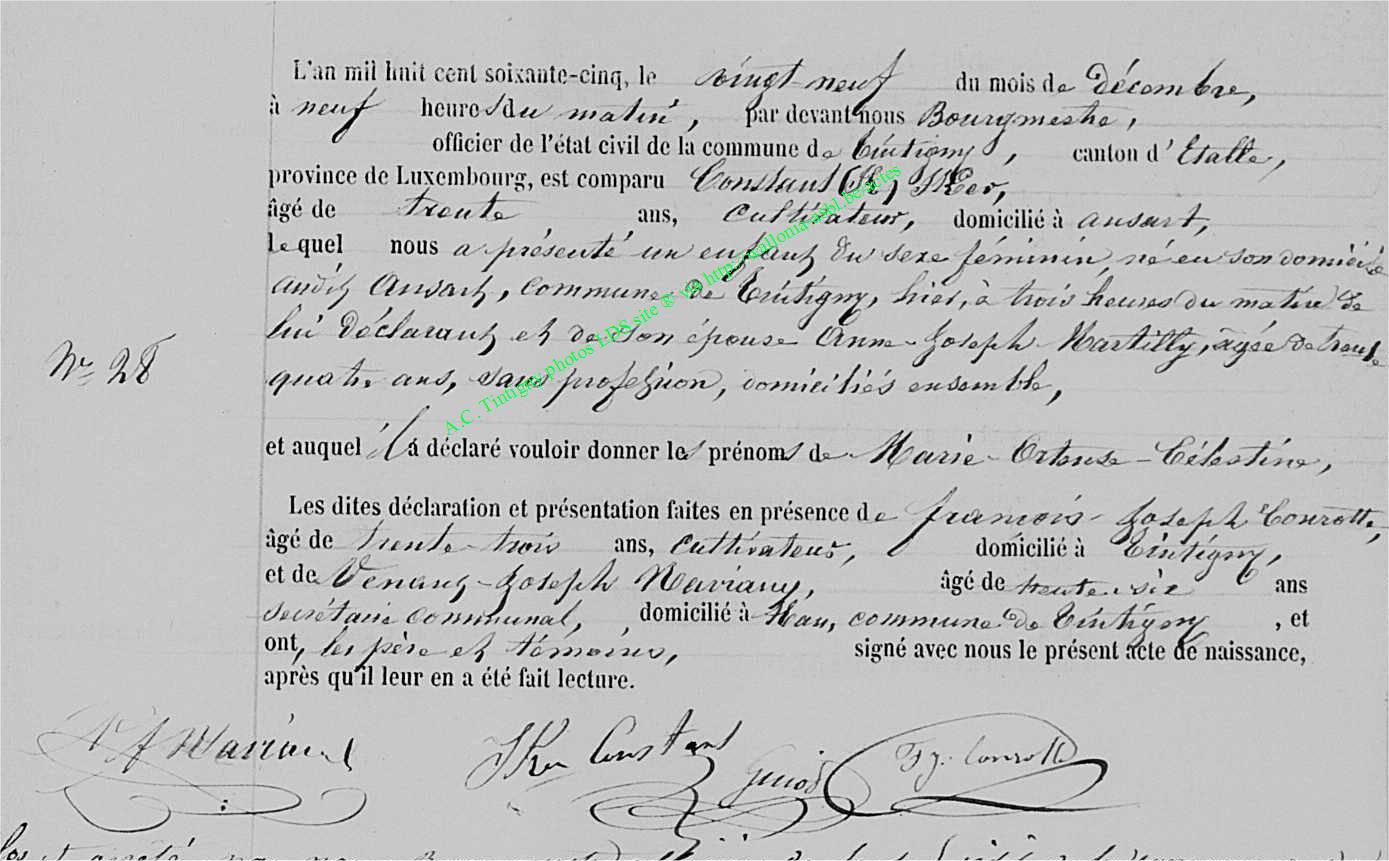 L'an mil huit cent soixante-cinq, le vingt-neuf du mois de décembre,
à neuf heures du matin, par devant nous Bourgmestre,
officier de l'état civil de la commune de Tintigny, canton d'Etalle,
province de Luxembourg, est comparu Constant
âgé de trente ans, cultivateur, domicilié à ansart,
lequel nous a présenté un enfant du sexe féminin, né en son domicile
audit Ansart, commune de Tintigny, hier, à trois heures du matin de
lui déclarant et de son épouse Anne-Joseph Martilly, agée de trente
quatre ans, sans profession, domiciliés ensemble,
N° 28
et auquel il a déclaré vouloir donner les prénoms de Marie-Ortense-Célestine,
Les dites déclaration et présentation faites en présence de francois-Joseph Conrotte,
âgé de trente-trois ans, cultivateur, domicilié à Tintigny,
et de Venant-Joseph âgé de trente-six ans
secrétaire communal, domicilié à Han, commune de Tintigny, et
ont, les père et témoins, signé avec nous le présent acte de naissance,
après qu'il leur en a été fait lecture.
Constant Fj. Conrotte
A.C. Tintigny photos LDS site ® via http://galloma-asbl.be/actes